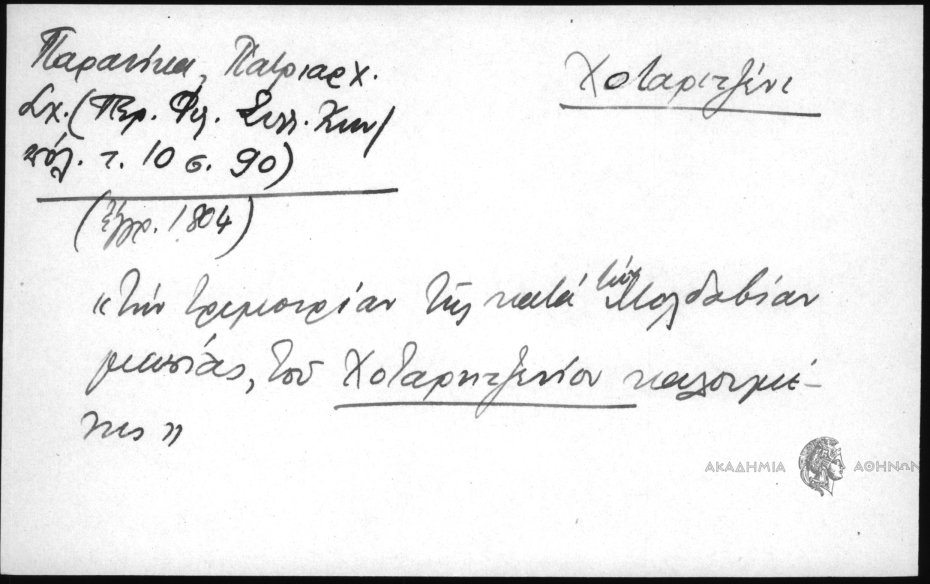 Παρανίκα, Πατριαρχ.
Σχ. (Περ. Φιλ. Συλλ. Κων/
πόλ. τ. 10 σ. 90)
Χοταριτζένι
(ἔγγρ. 1804)
«τὴν τριμοιρίαν τῆς κατὰ τὴν Μολδαβίαν
μωσίας, τοῦ Χοταριτζενίου καλουμέ-
νης»
ΑΚΑΔΗΜΙΑ ΑΘΗΝΩΝ